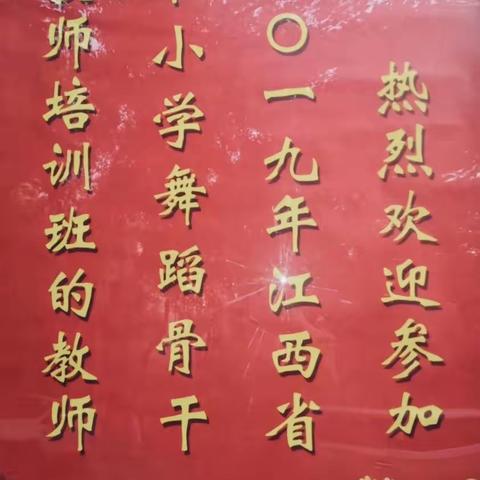 热烈欢迎参加
〇一九年江西省
小学舞蹈骨干
师培训班的教师